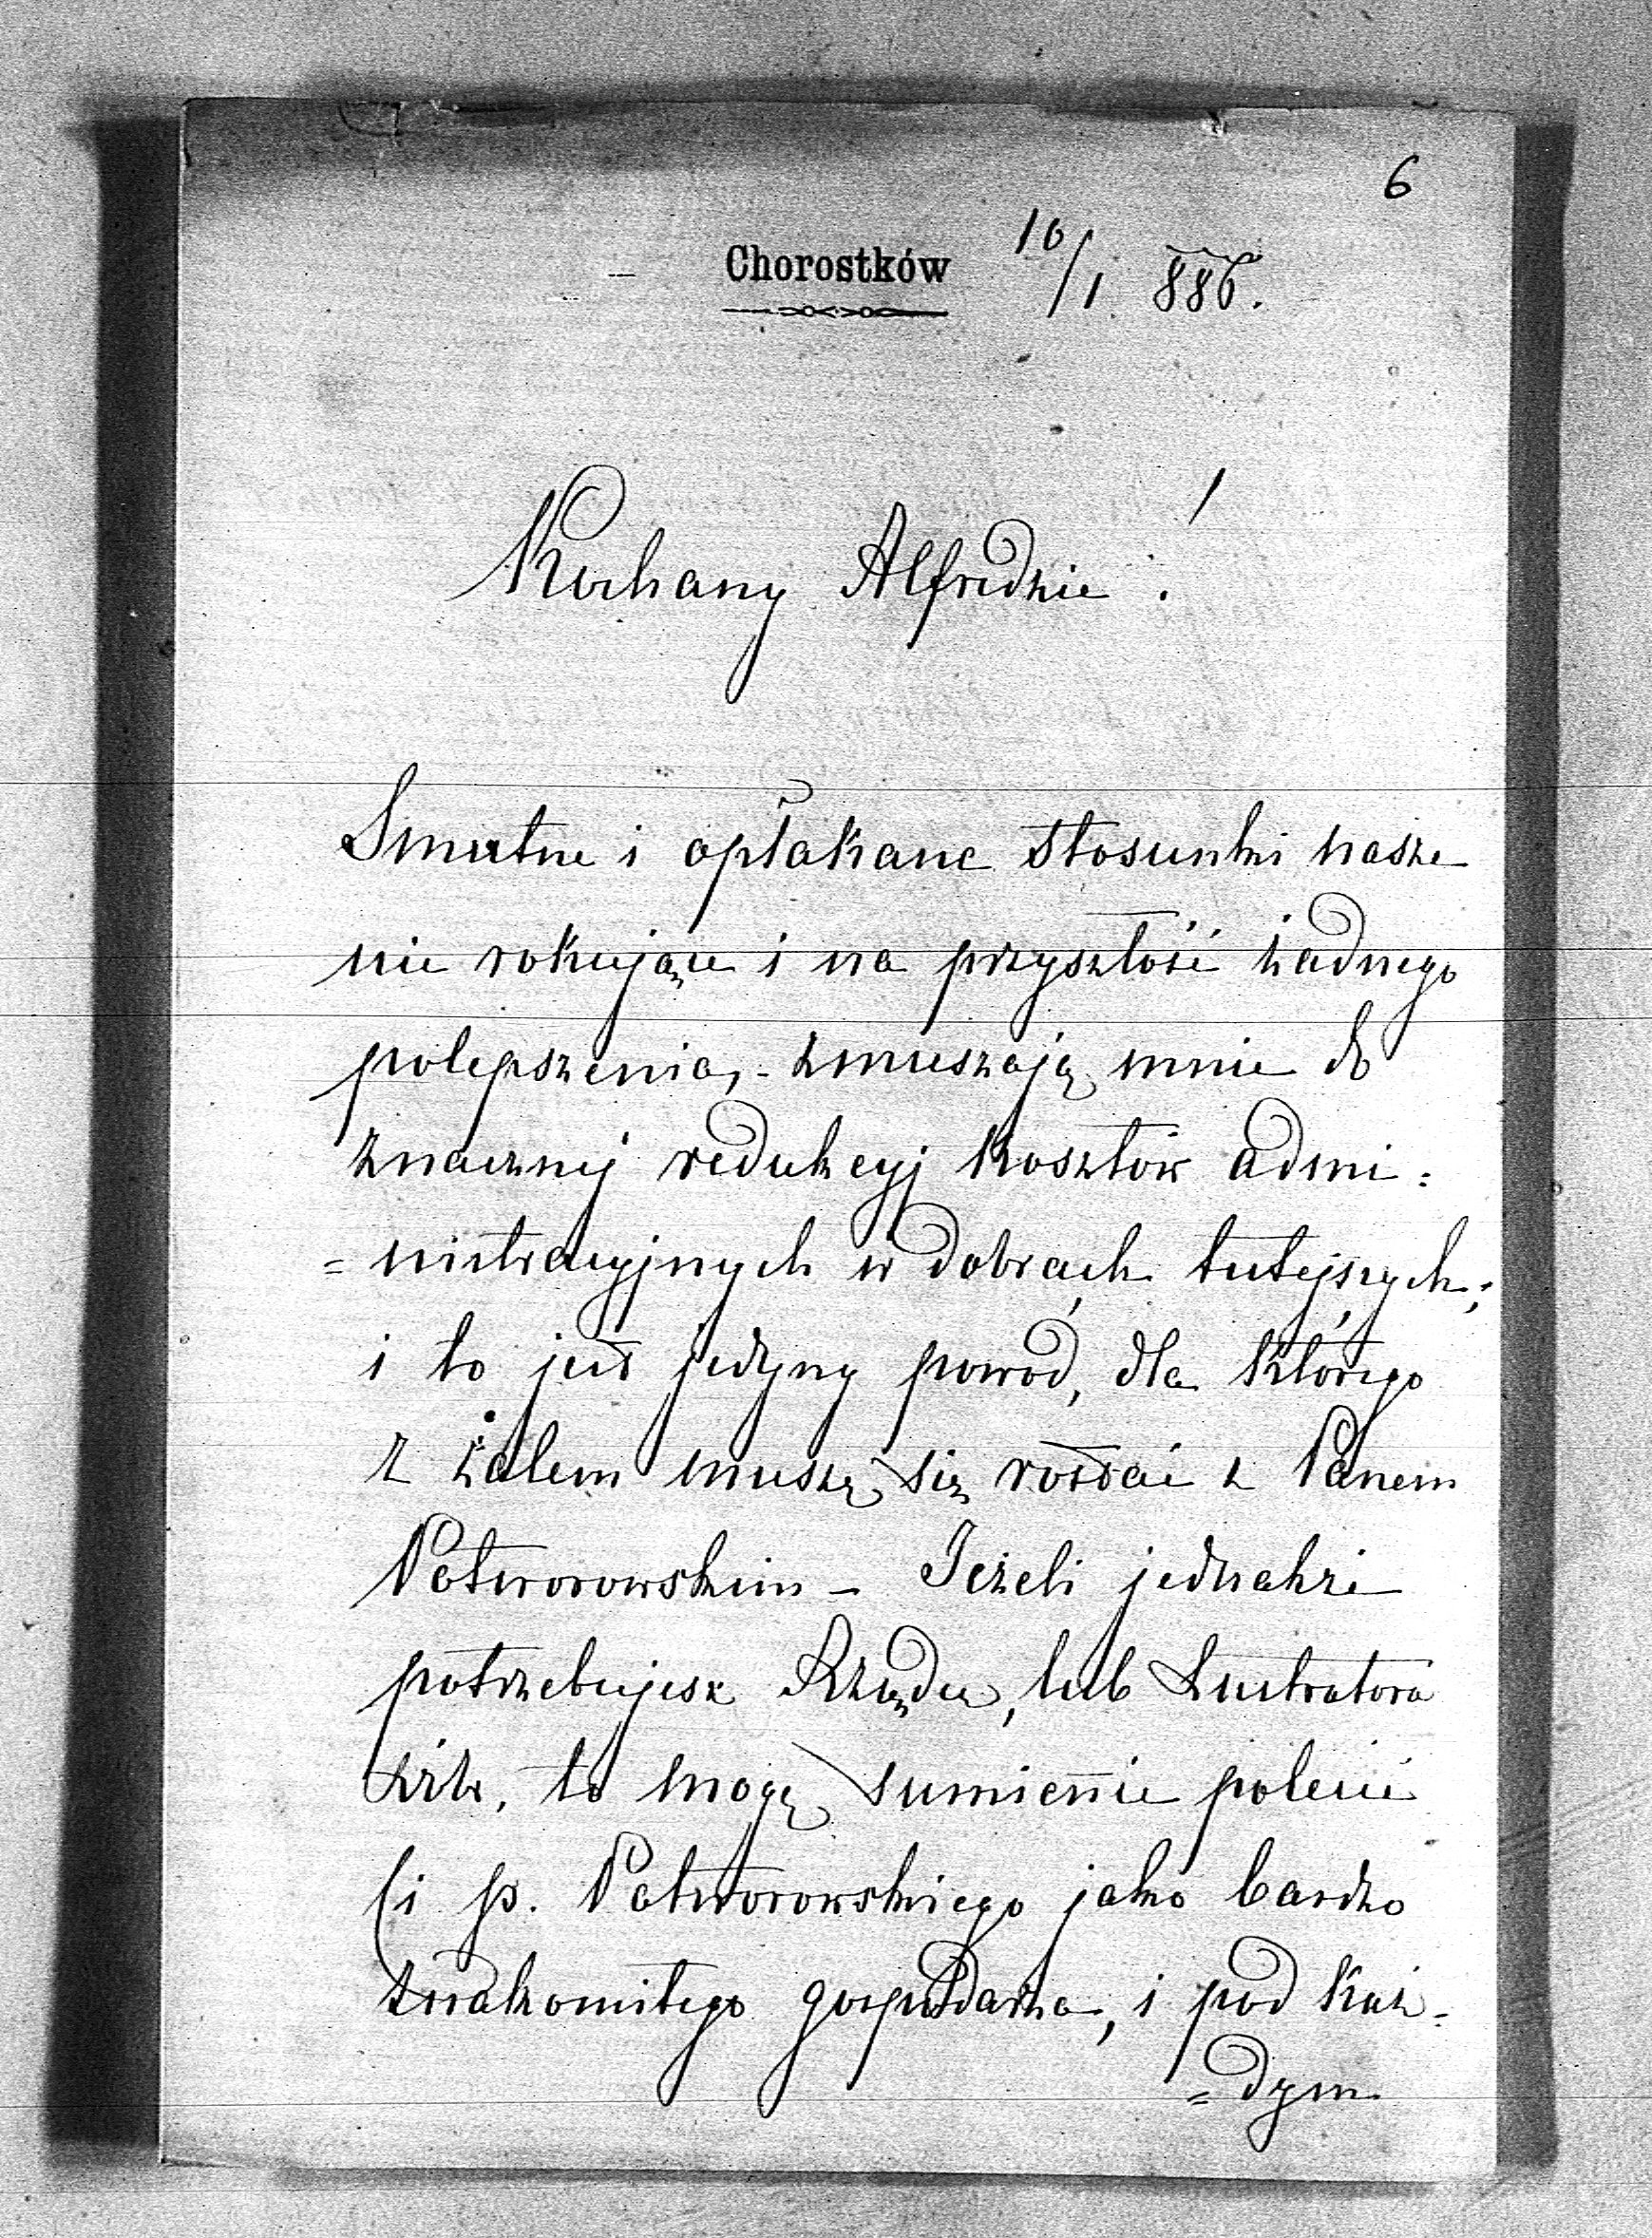 6
Chorostków 16/1 886.
Kochany Alfredzie!
Smutne i opłakane stosunki nasze
nie rokujące i na przyszłość żadnego
polepszenia, - zmuszają mnie do
znacznej redukcyj kosztów admi:
= nistracyjnych w dobrach tutejszych;
i to jest jedyny powód, dla którego
z żalem muszę się rostać z Panem
Potworowskim - Jeżeli jednakże
potrzebujesz Rządcę, lub Lustratora
to mogę sumiennie polecić
(i p. Potworowskiego jako bardzo
znakomitego gospodarza, i pod każ-
= dym